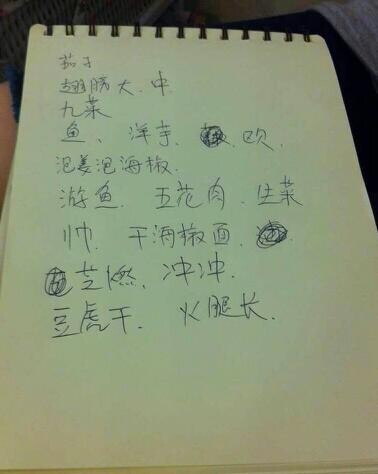 茄子
翅膀大.中
九菜
鱼、洋芋、吹.
泡姜泡海椒.
游鱼.五花肉.生菜
帅.干海椒面.
芝燃.冲冲.
豆虎干.火腿长.